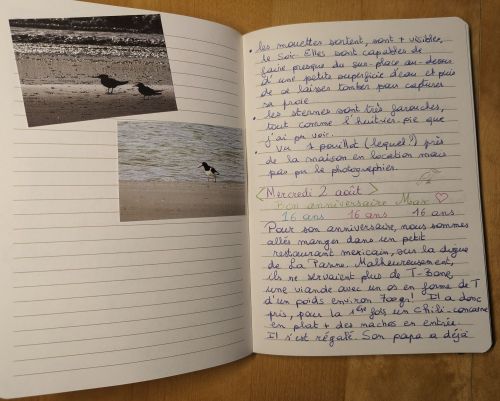 • les mouettes sortent, sont + visibles,
le soir. Elles sont capables de
faire presque du sur-place au-dessus
d'une petite superficie d'eau et puis
de se laisser tomber pour capturer
sa proie.
• les sternes sont très farouches,
tout comme l'huîtrier-pie que
j'ai pu voir.
• Vu 1 pouillot (lequel?) près
de la maison en location mais
pas pu le photographier.
Mercredi 2 août
Bon anniversaire Max
16 ans 16 ans 16 ans
Pour son anniversaire, nous sommes
allés manger dans un petit
restaurant mexicain, sur la digue
de La Panne. Malheureusement,
ils ne servaient plus de T-Bone,
une viande avec un os en forme de T
d'un poids environ 700gr! Il a donc
pris, pour la 1ère fois un chili-concarne
en plat + des nachos en entrée.
Il s'est régalé. Son papa a déjà